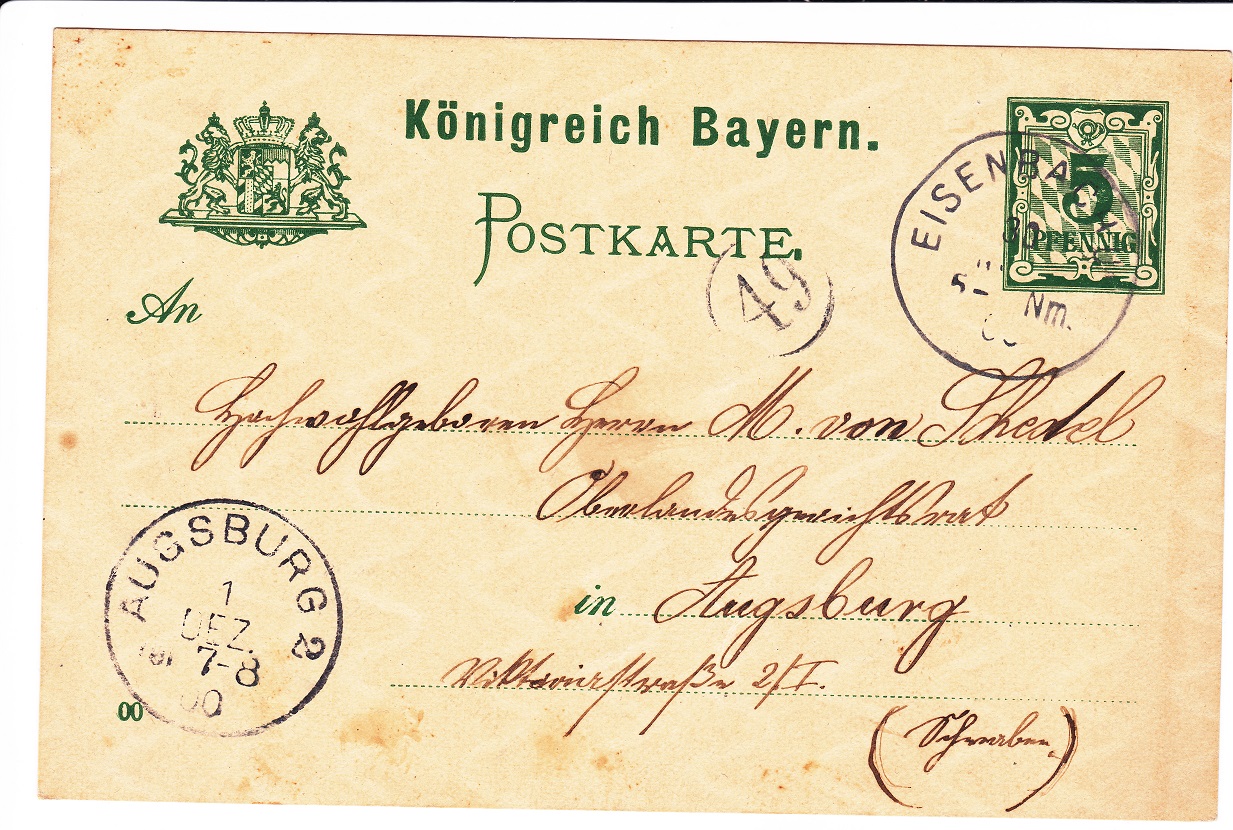 Königreich Bayern.
POSTKARTE.
5
PFENNIG
EISENBACH
30
Nm.
49
An
Hochwohlgeboren Herrn M. von Schedel
Oberlandesgerichtsrat
in Augsburg
Viktoriastraße 2/I.
(Schwaben.)
AUGSBURG 2
1
DEZ.
7-8
00
00